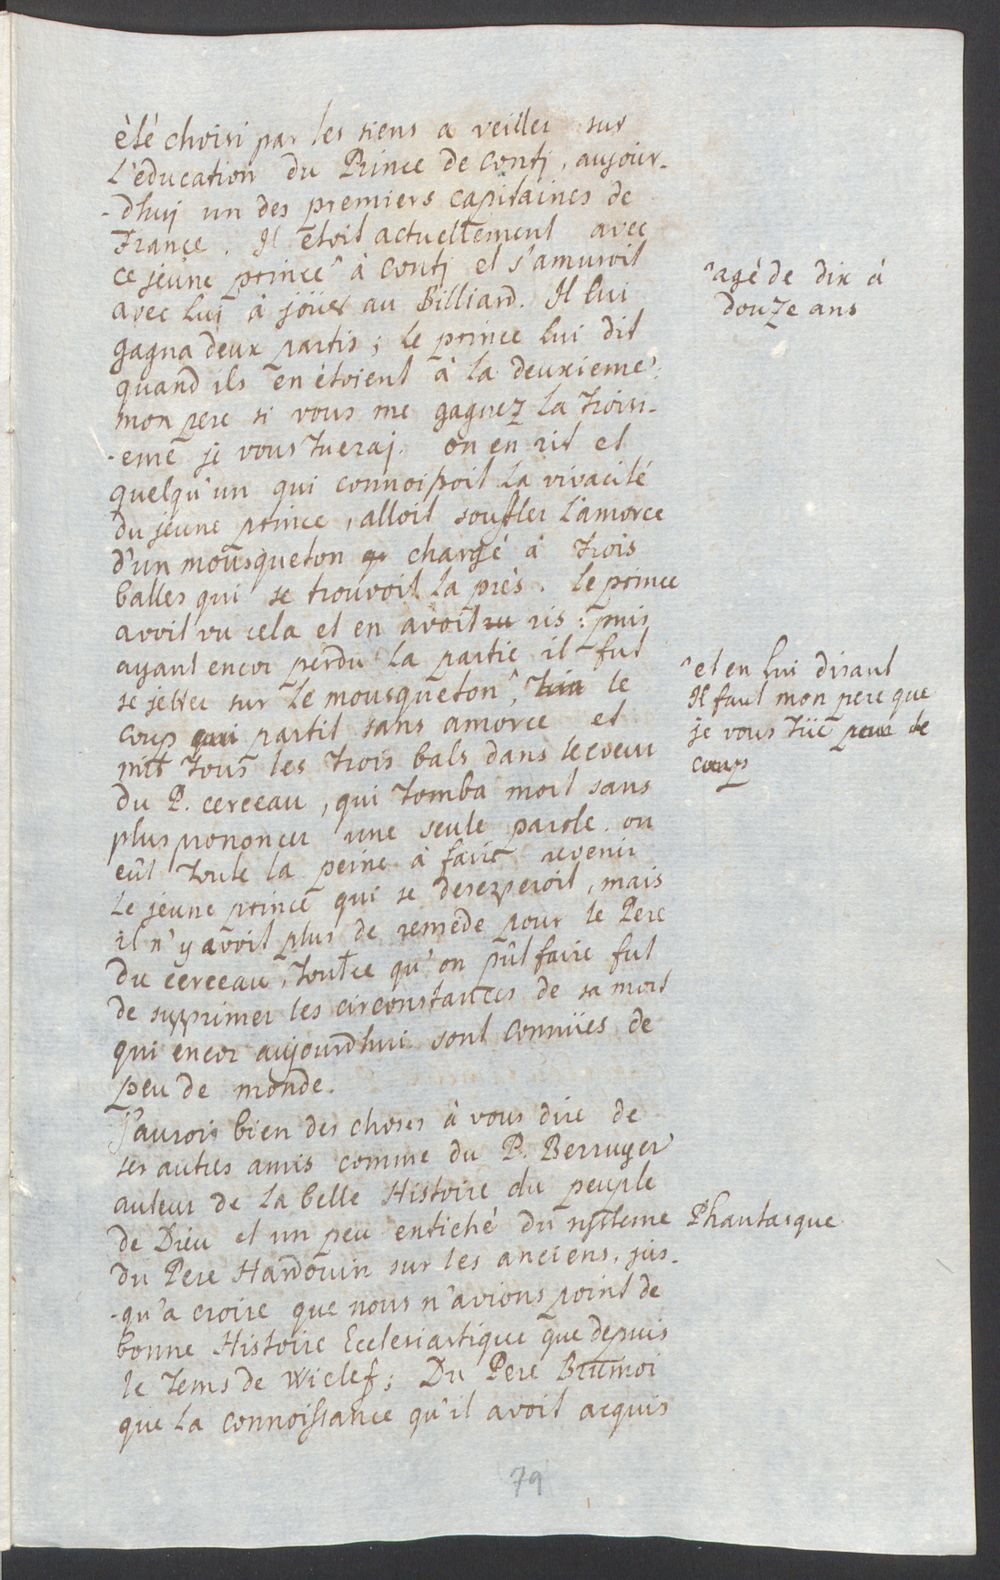 èté choisi par les siens a veiller sur
L'èducation du Prince de Contj, aujour-
-dhuj un des premiers capitaines de
France. Il ètoit actuellement avec
ce jeune prince^ à Contj et s'amusoit
avec Luj à joüer au Billiard. Il lui
gagna deux partis; le prince lui dit
quand ils en étoient à la deuxieme:
mon pere si vous me gagnez la troisi-
-eme je vous tueraj. on en rit et
quelqu'un qui connoissoit la vivacité
du jeune prince, alloit souffler L'amorce
d'un mousqueton chargé à trois
balles qui se trouvoit la près. le prince
avoit vu cela et en avoit ris: puis
ayant encor perdu la partie il fut
se jetter sur le mousqueton^, le
coup partit sans amorce et
mit tous les trois bals dans le coeur
du P. cerceau, qui tomba mort sans
plus prononcer une seule parole. on
eût toute la peine à faire revenir
le jeune prince qui se desezperoit, mais
il n'y avoit plus de remede pour le Pere
du cerceau, tout ce qu'on pût faire fut
de supprimer les circonstances de sa mort
qui encor aujourdhui sont connües de
peu de monde.
J'aurois bien des choses à vous dire de
ses autres amis comme du P. Berruyer
auteur de la belle Histoire du peuple
de Dieu et un peu entiché du systeme
du Pere Hardouin sur les anciens, jus-
-qu'a croire que nous n'avions point de
bonne Histoire Ecclesiastique que depuis
le tems de Wiclef; Du Pere Brumoi
que la connoissance qu'il avoit acquis
^agé de dix à
douze ans
^et en lui disant
Il faut mon pere que
je vous tüe
Phantasque
79